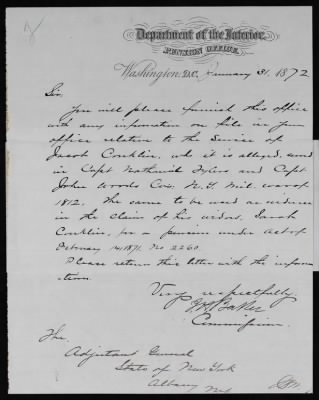 Department of the Interior,
PENSION OFFICE,
Washington, D.C. January 31, 1872
Sir,
You will please furnish this office
with any information on file in your
office relative to the Service of
Jacob Conklin, who it is alleged, served
in Capt Nathaniel Tylers and Capt
John Woods Cos, N.Y. Mil, war of
1812. The same to be used as evidence
in the claim of his widow, Sarah
Conklin, for a pension under Act of
February 14 1871. No 2260.
Please return this letter with the inform
ation.
Very respectfully,
J H Baker
Commissioner.
The
Adjutant General
State of New York
Albany
NY